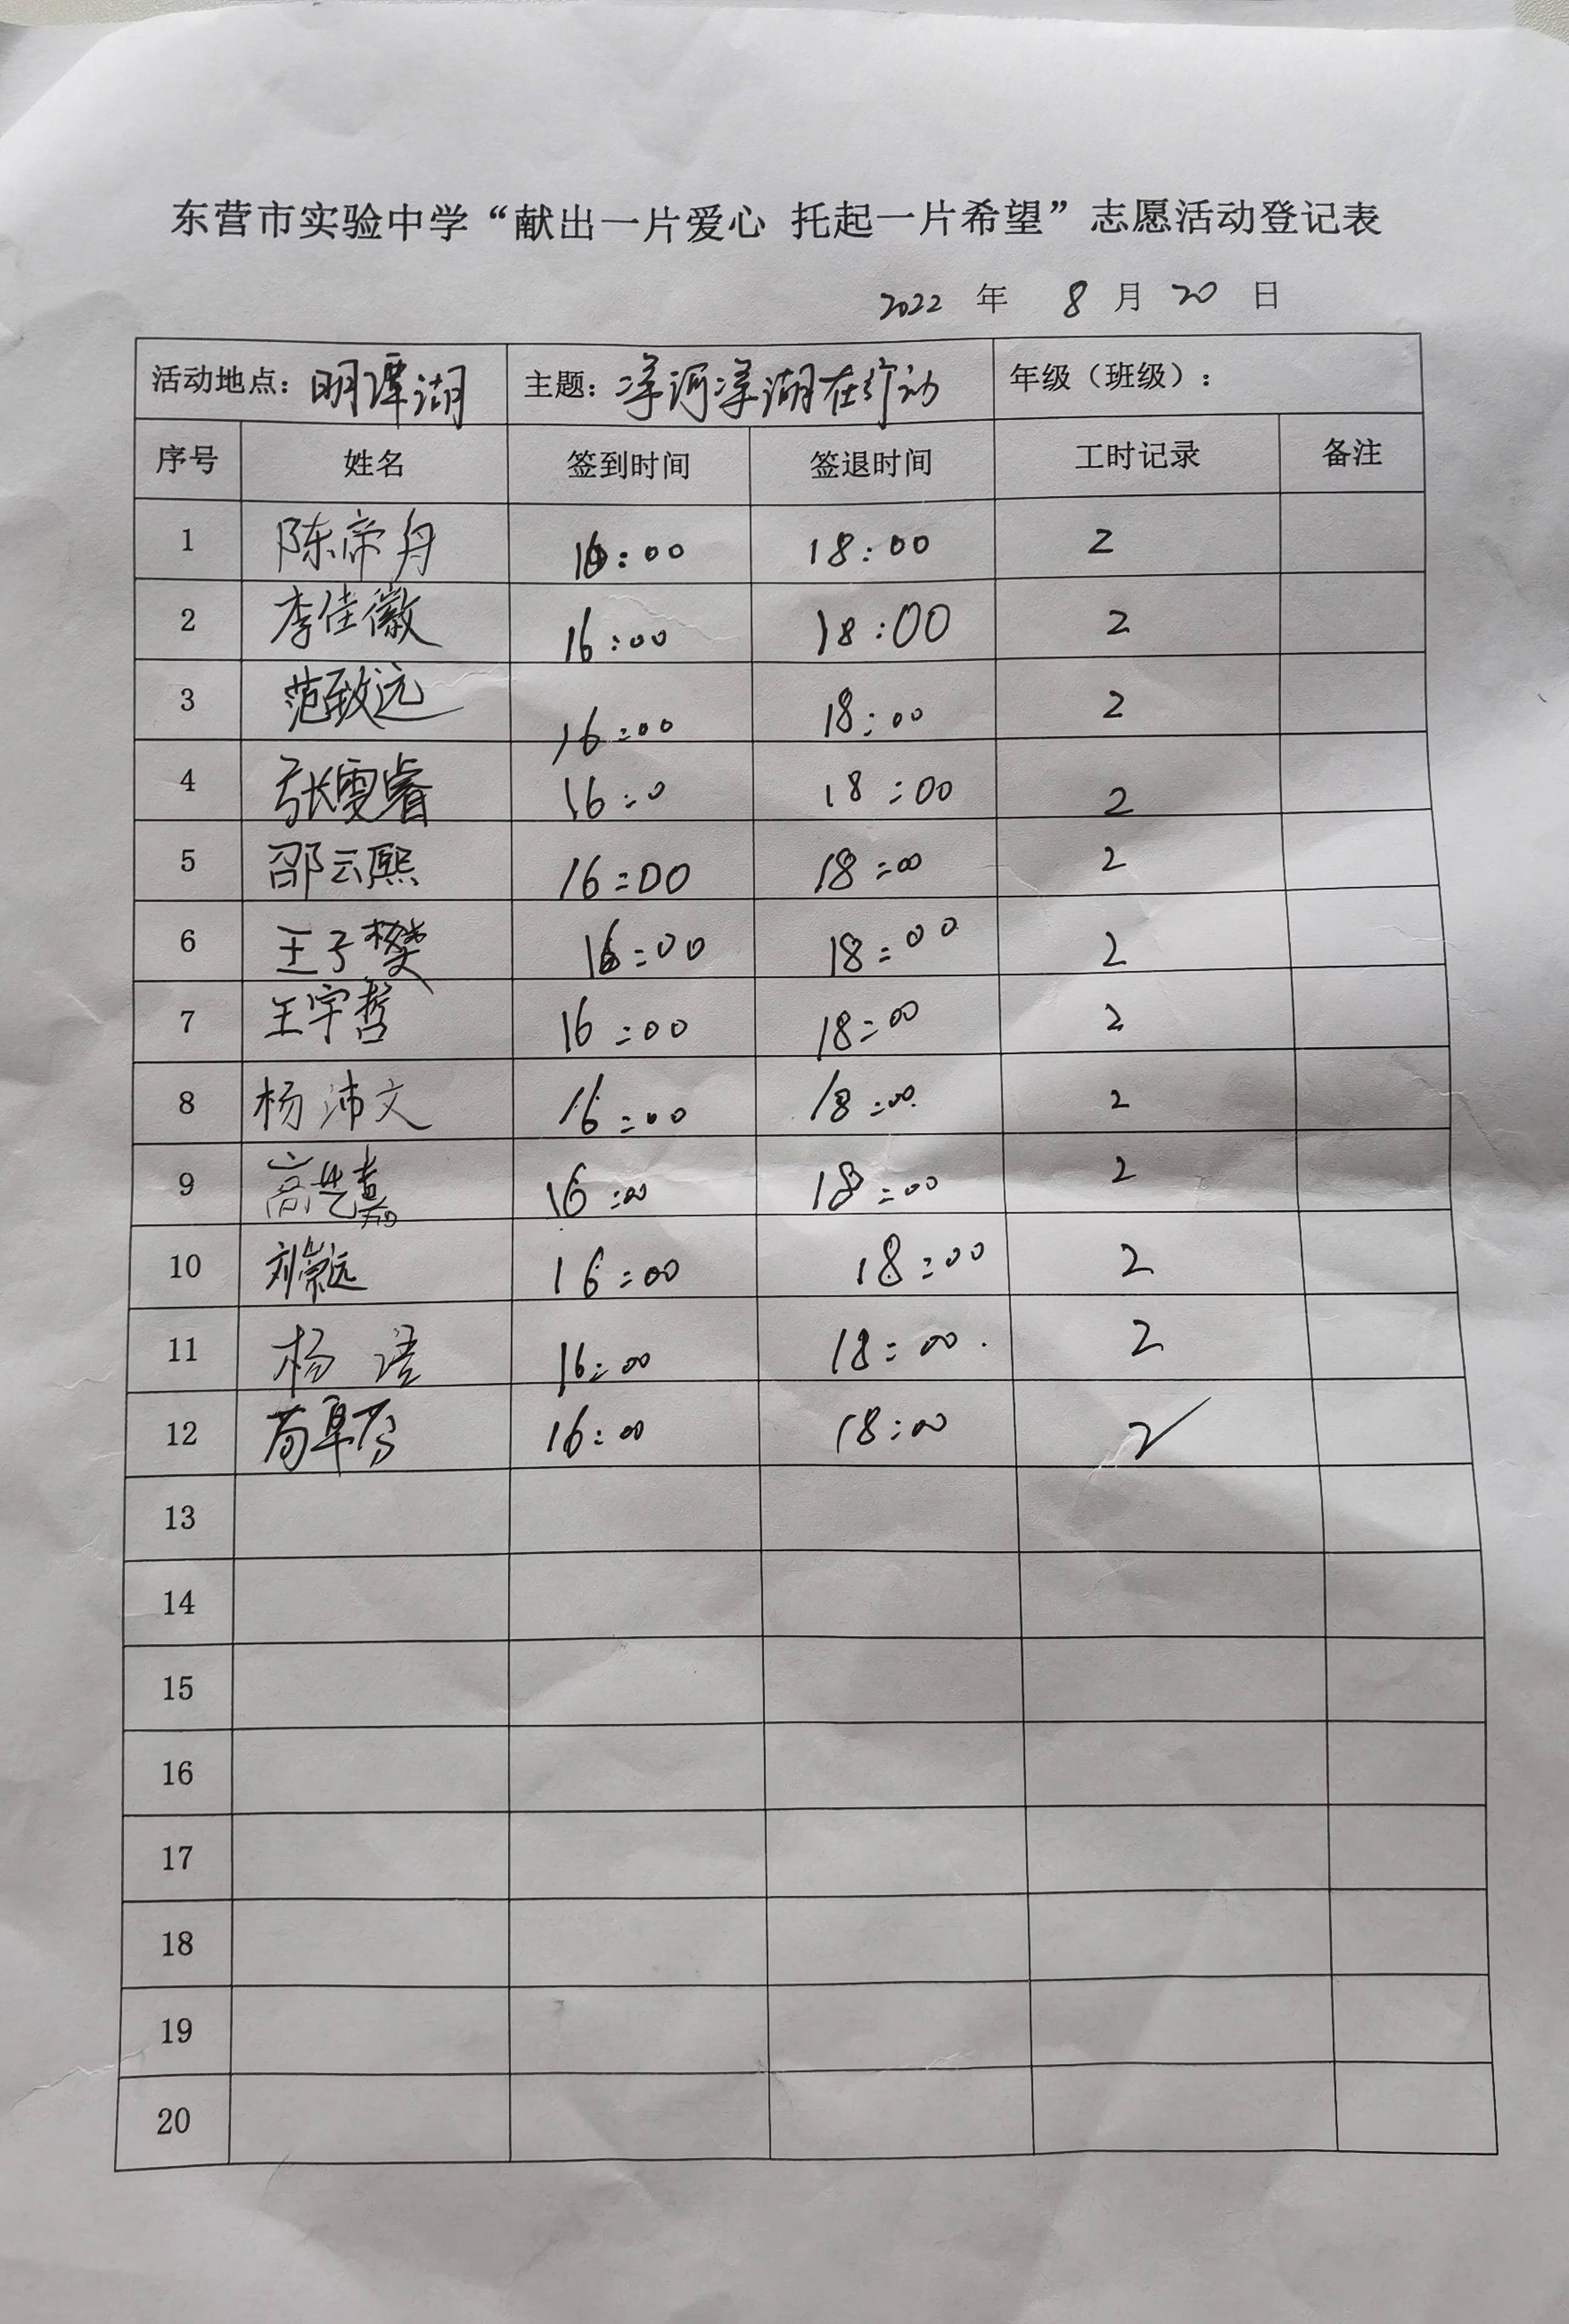 东营市实验中学“献出一片爱心 托起一片希望”志愿活动登记表
2022 年 8 月 20 日
活动地点：明潭湖 主题：净河净湖在行动 年级（班级）：
序号 姓名 签到时间 签退时间 工时记录 备注
1 陈帝舟 16:00 18:00 2
2 李佳徽 16:00 18:00 2
3 范致远 16:00 18:00 2
4 张雯睿 16:0 18:00 2
5 邵云熙 16:00 18:00 2
6 王子樊 16:00 18:00 2
7 王宇哲 16:00 18:00 2
8 杨沛文 16:00 18:00 2
9 高艺嘉 16:00 18:00 2
10 刘崇远 16:00 18:00 2
11 杨语 16:00 18:00 2
12 16:00 18:00 2
13
14
15
16
17
18
19
20